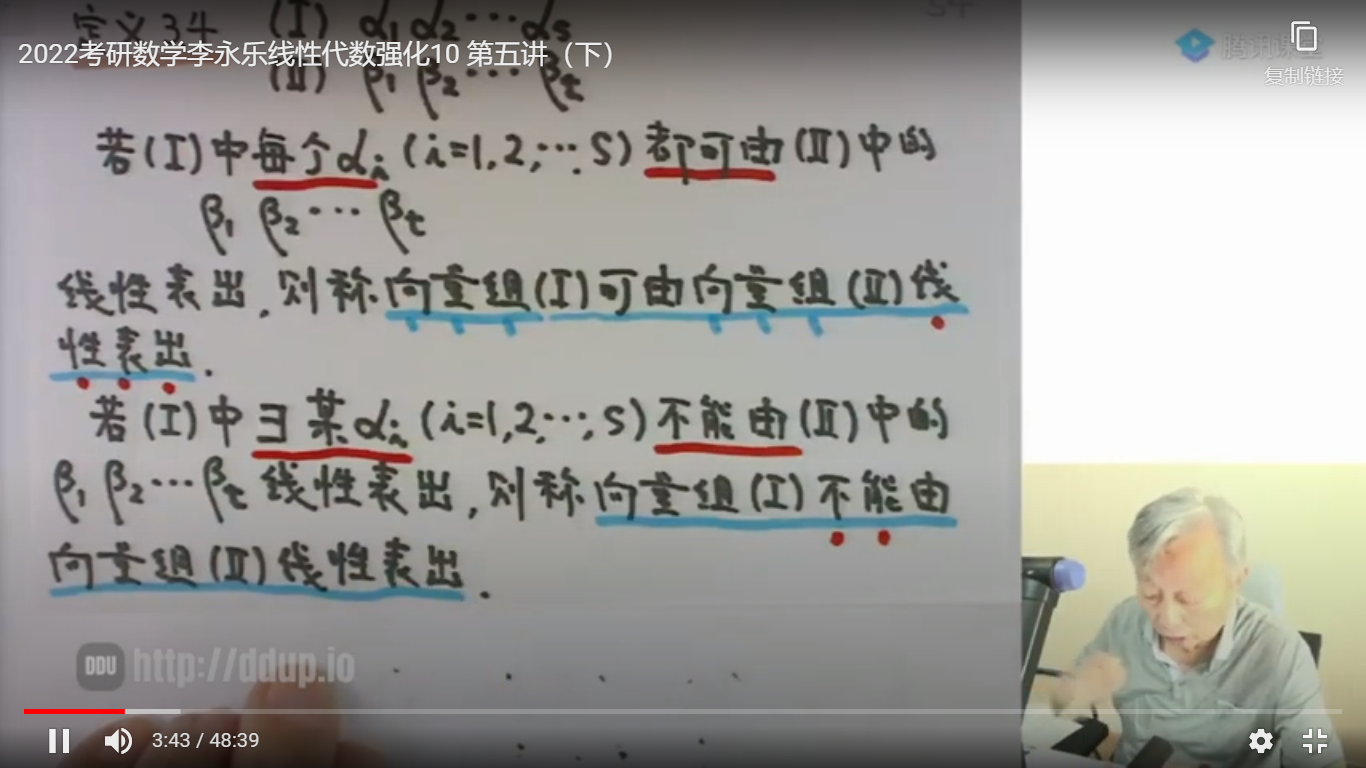 定义3.4 (I) α₁ α₂ ⋯ αs
2022考研数学李永乐线性代数强化10 第五讲（下）
腾讯课堂
复制链接
(II) β₁ β₂ ⋯ βt
若(I)中每个αi (i=1,2,⋯,s)都可由(II)中的
β₁ β₂ ⋯ βt
线性表出,则称向量组(I)可由向量组(II)线
性表出.
若(I)中∃某αi (i=1,2,⋯,s)不能由(II)中的
β₁ β₂ ⋯ βt 线性表出,则称向量组(I)不能由
向量组(II)线性表出.
DDU http://ddup.io
3:43 / 48:39